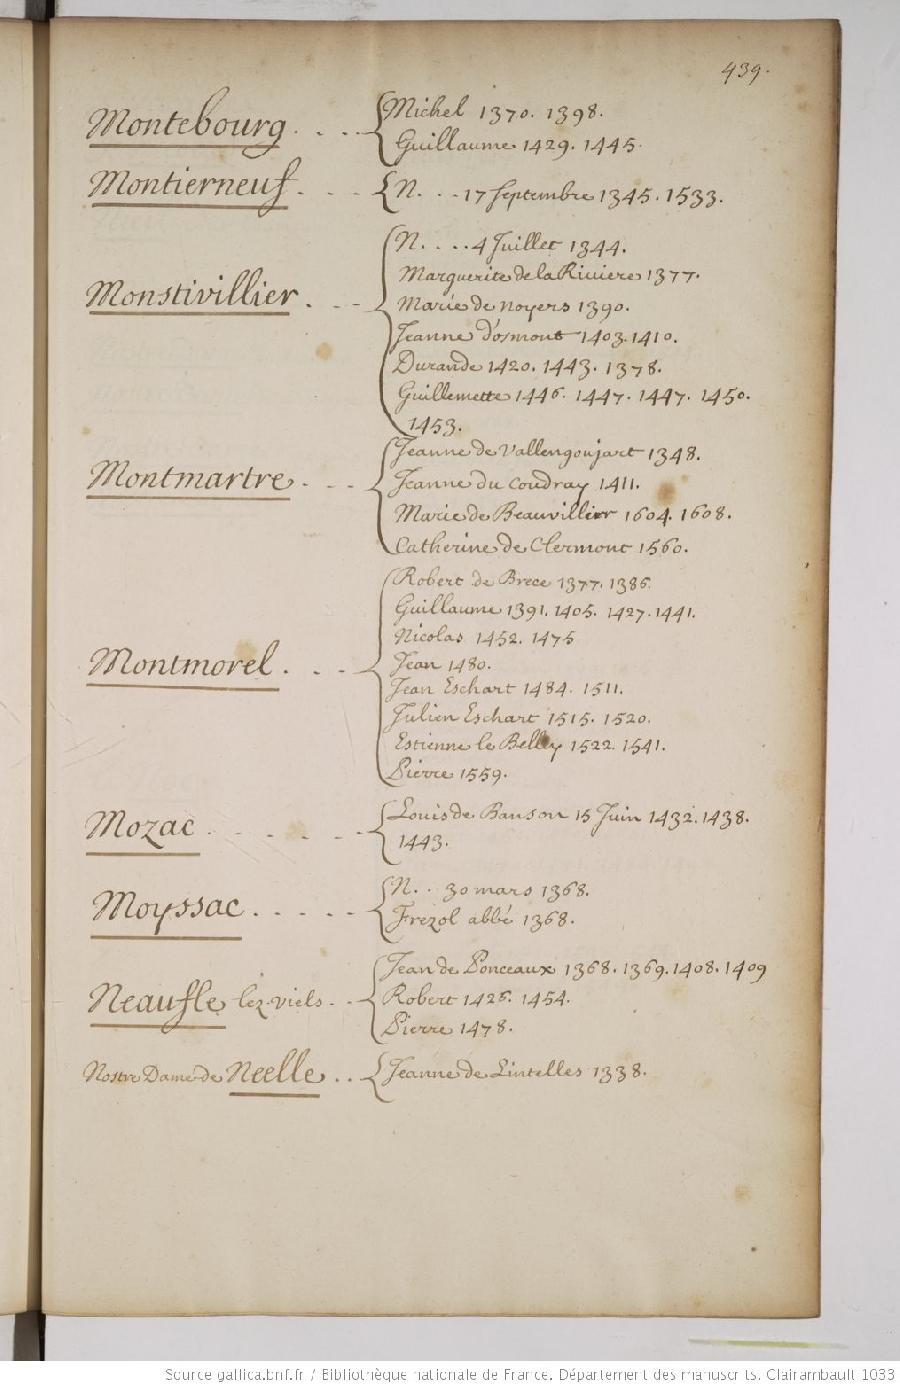 439.
Montebourg. . . . Michel 1370. 1398.
Guillaume 1429. 1445.
Montierneuf. . . . N. . . . 17 septembre 1345. 1533.
N. . . . 4 Juillet 1344.
Marguerite de la Riviere 1377.
Monstivillier. . . Marie de noyers 1390.
Jeanne d'osmont 1403. 1410.
Durande 1420. 1443. 1378.
Guillemette 1446. 1447. 1447. 1450.
1453.
Jeanne de Vallengoujart 1348.
Montmartre. . . Jeanne du Coudray 1411.
Marie de Beauvillier 1604. 1608.
Catherine de Clermont 1560.
Robert de Brece 1377. 1386.
Guillaume 1391. 1405. 1427. 1441.
Nicolas 1452. 1475
Montmorel. . . . Jean 1480.
Jean Eschart 1484. 1511.
Julien Eschart 1515. 1520.
Estienne le Belly 1522. 1541.
Pierre 1559.
Mozac. . . . . . Louis de Banson 15 Juin 1432. 1438.
1443.
Moyssac. . . . . N. . 30 mars 1368.
Frezol abbé 1368.
Jean de Ponceaux 1368. 1369. 1408. 1409
Neaufle lez-viels. . . Robert 1426. 1454.
Pierre 1478.
Nostre Dame de Neelle. . . Jeanne de Lintelles 1338.
Source gallica.bnf.fr / Bibliothèque nationale de France. Département des manuscrits. Clairambault 1033